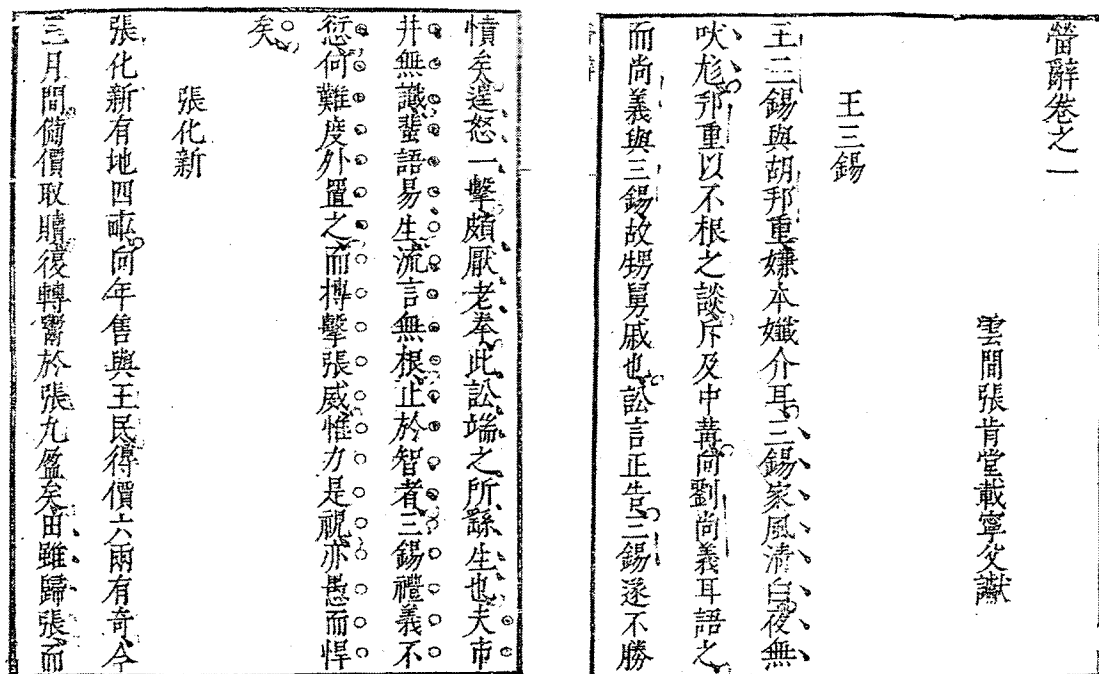 㽦辭卷之一
雲間張肯堂載寧父讞
王三錫
王三錫與胡邦重嫌本孅介耳三錫家風清白夜無
吠尨邦重以不根之談斥及中冓向劉尚義耳語之
而尚義與三錫故甥舅戚也訟言正告三錫遂不勝
憤矣遑怒一擊頗厭老拳此訟端之所繇生也夫市
井無識蜚語易生流言無根止於智者三錫禮義不
愆何難度外置之而摶擊張威惟力是視亦愚而悍
矣
張化新
張化新有地四畝向年售與王民得價六兩有奇今
三月間備價取贖復轉鬻於張九盈矣田雖歸張而